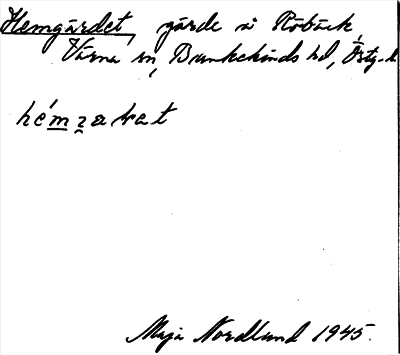 Hemgärdet, gärde å Röbäck,
Värna sn, Bankekinds hd, Östg.
hémzarat
Maja Nordlund 1945.